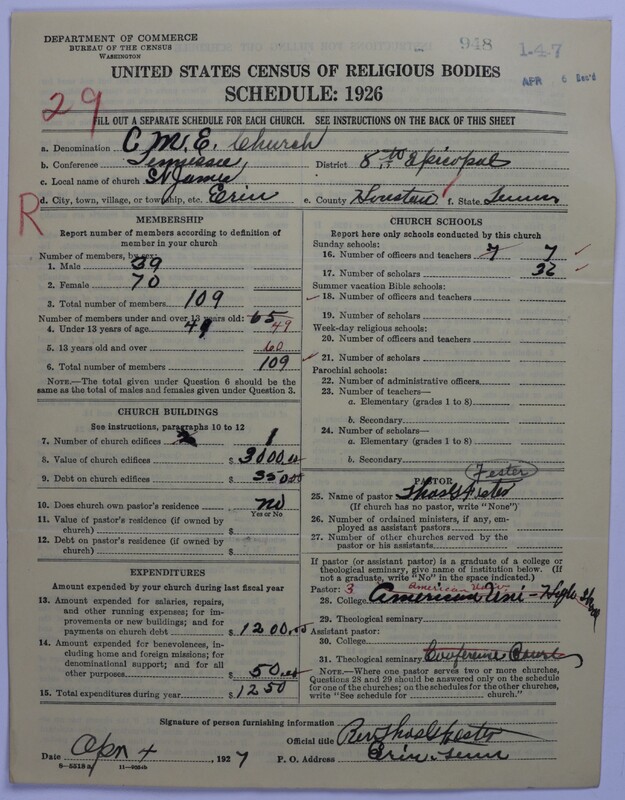 DEPARTMENT OF COMMERCE
BUREAU OF THE CENSUS
WASHINGTON
948
1-47
APR 6 Rec'd
UNITED STATES CENSUS OF RELIGIOUS BODIES
SCHEDULE: 1926
29
FILL OUT A SEPARATE SCHEDULE FOR EACH CHURCH. SEE INSTRUCTIONS ON THE BACK OF THIS SHEET
a. Denomination C. M. E. Church
b. Conference Tennessee District 8th Episcopal
c. Local name of church St James
d. City, town, village, or township, etc. Erin e. County Houston f. State Tenn
R
MEMBERSHIP
Report number of members according to definition of member in your church
Number of members, by sex:
1. Male 39
2. Female 70
3. Total number of members 109
Number of members under and over 13 years old: 65
4. Under 13 years of age 49 49
5. 13 years old and over 60
6. Total number of members 109
NOTE.—The total given under Question 6 should be the same as the total of males and females given under Question 3.
CHURCH BUILDINGS
See instructions, paragraphs 10 to 12
7. Number of church edifices 1
8. Value of church edifices $ 3000.00
9. Debt on church edifices $ 350.00
10. Does church own pastor's residence no
Yes or No
11. Value of pastor's residence (if owned by church) $
12. Debt on pastor's residence (if owned by church) $
EXPENDITURES
Amount expended by your church during last fiscal year
13. Amount expended for salaries, repairs, and other running expenses; for improvements or new buildings; and for payments on church debt $ 1200.00
14. Amount expended for benevolences, including home and foreign missions; for denominational support; and for all other purposes $ 50.00
15. Total expenditures during year $ 1250
CHURCH SCHOOLS
Report here only schools conducted by this church
Sunday schools:
16. Number of officers and teachers 7 7
17. Number of scholars 32
Summer vacation Bible schools:
18. Number of officers and teachers
19. Number of scholars
Week-day religious schools:
20. Number of officers and teachers
21. Number of scholars
Parochial schools:
22. Number of administrative officers
23. Number of teachers—
a. Elementary (grades 1 to 8)
b. Secondary
24. Number of scholars—
a. Elementary (grades 1 to 8)
b. Secondary
PASTOR Fester
25. Name of pastor Thos G Fester
(If church has no pastor, write "None")
26. Number of ordained ministers, if any, employed as assistant pastors
27. Number of other churches served by the pastor or his assistants
If pastor (or assistant pastor) is a graduate of a college or theological seminary, give name of institution below. (If not a graduate, write "No" in the space indicated.)
Pastor: 3 American Univ
28. College American Uni
29. Theological seminary
Assistant pastor:
30. College
31. Theological seminary Conference Course
NOTE.—Where one pastor serves two or more churches, Questions 28 and 29 should be answered only on the schedule for one of the churches; on the schedules for the other churches, write "See schedule for church."
Signature of person furnishing information
Official title Rev Thos G Fester
Date Apr 4, 1927 P. O. Address Erin. Tenn
8—5518a 11—9054b